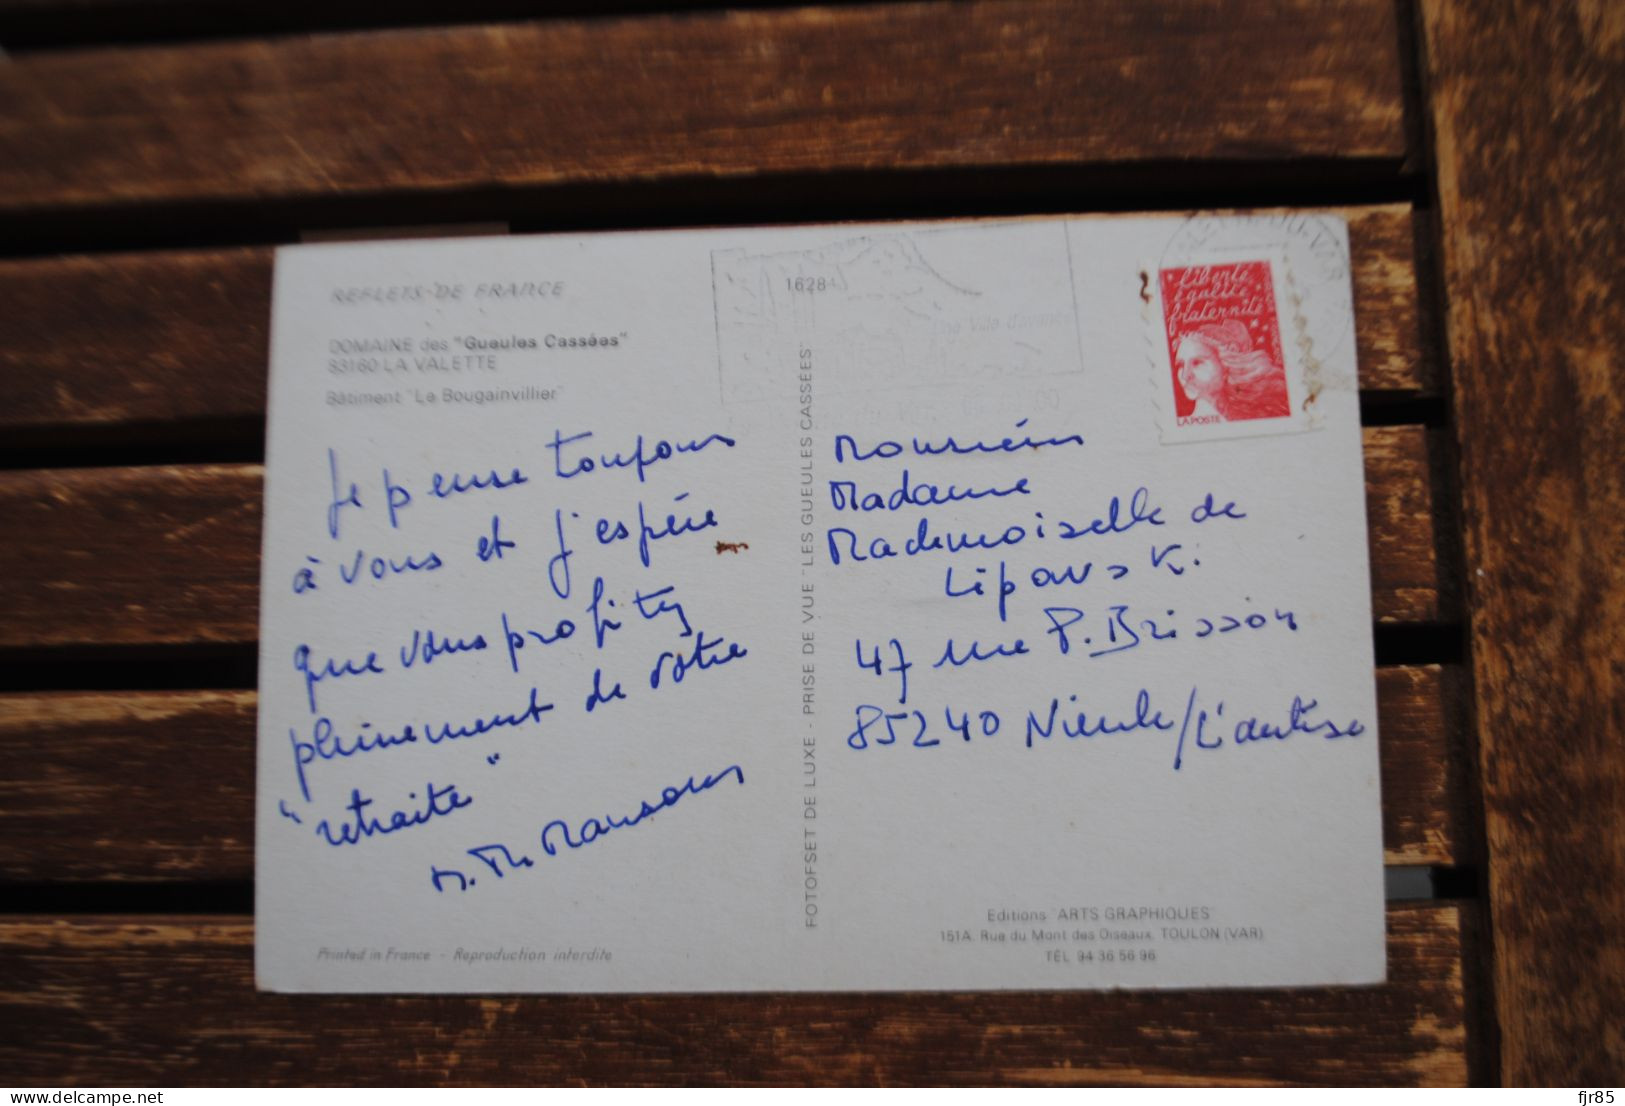 REFLETS DE FRANCE
DOMAINE des "Gueules Cassées"
83160 LA VALETTE
Bâtiment "Le Bougainvillier"
Je pense toujours
à vous et j'espère
que vous profitez
pleinement de votre
"retraite"
Printed in France - Reproduction interdite
FOTOFSET DE LUXE - PRISE DE VUE "LES GUEULES CASSÉES"
16284
Une Ville d'avance
liberté
égalité
fraternité
LA POSTE
Monsieur
Madame
Mademoiselle de
Lipovski
47 rue P. Brisson
85240 Nieul/L'autise
Editions "ARTS GRAPHIQUES"
151A, Rue du Mont des Oiseaux, TOULON (VAR)
TÉL 94 36 56 96
delcampe.net
fjr85